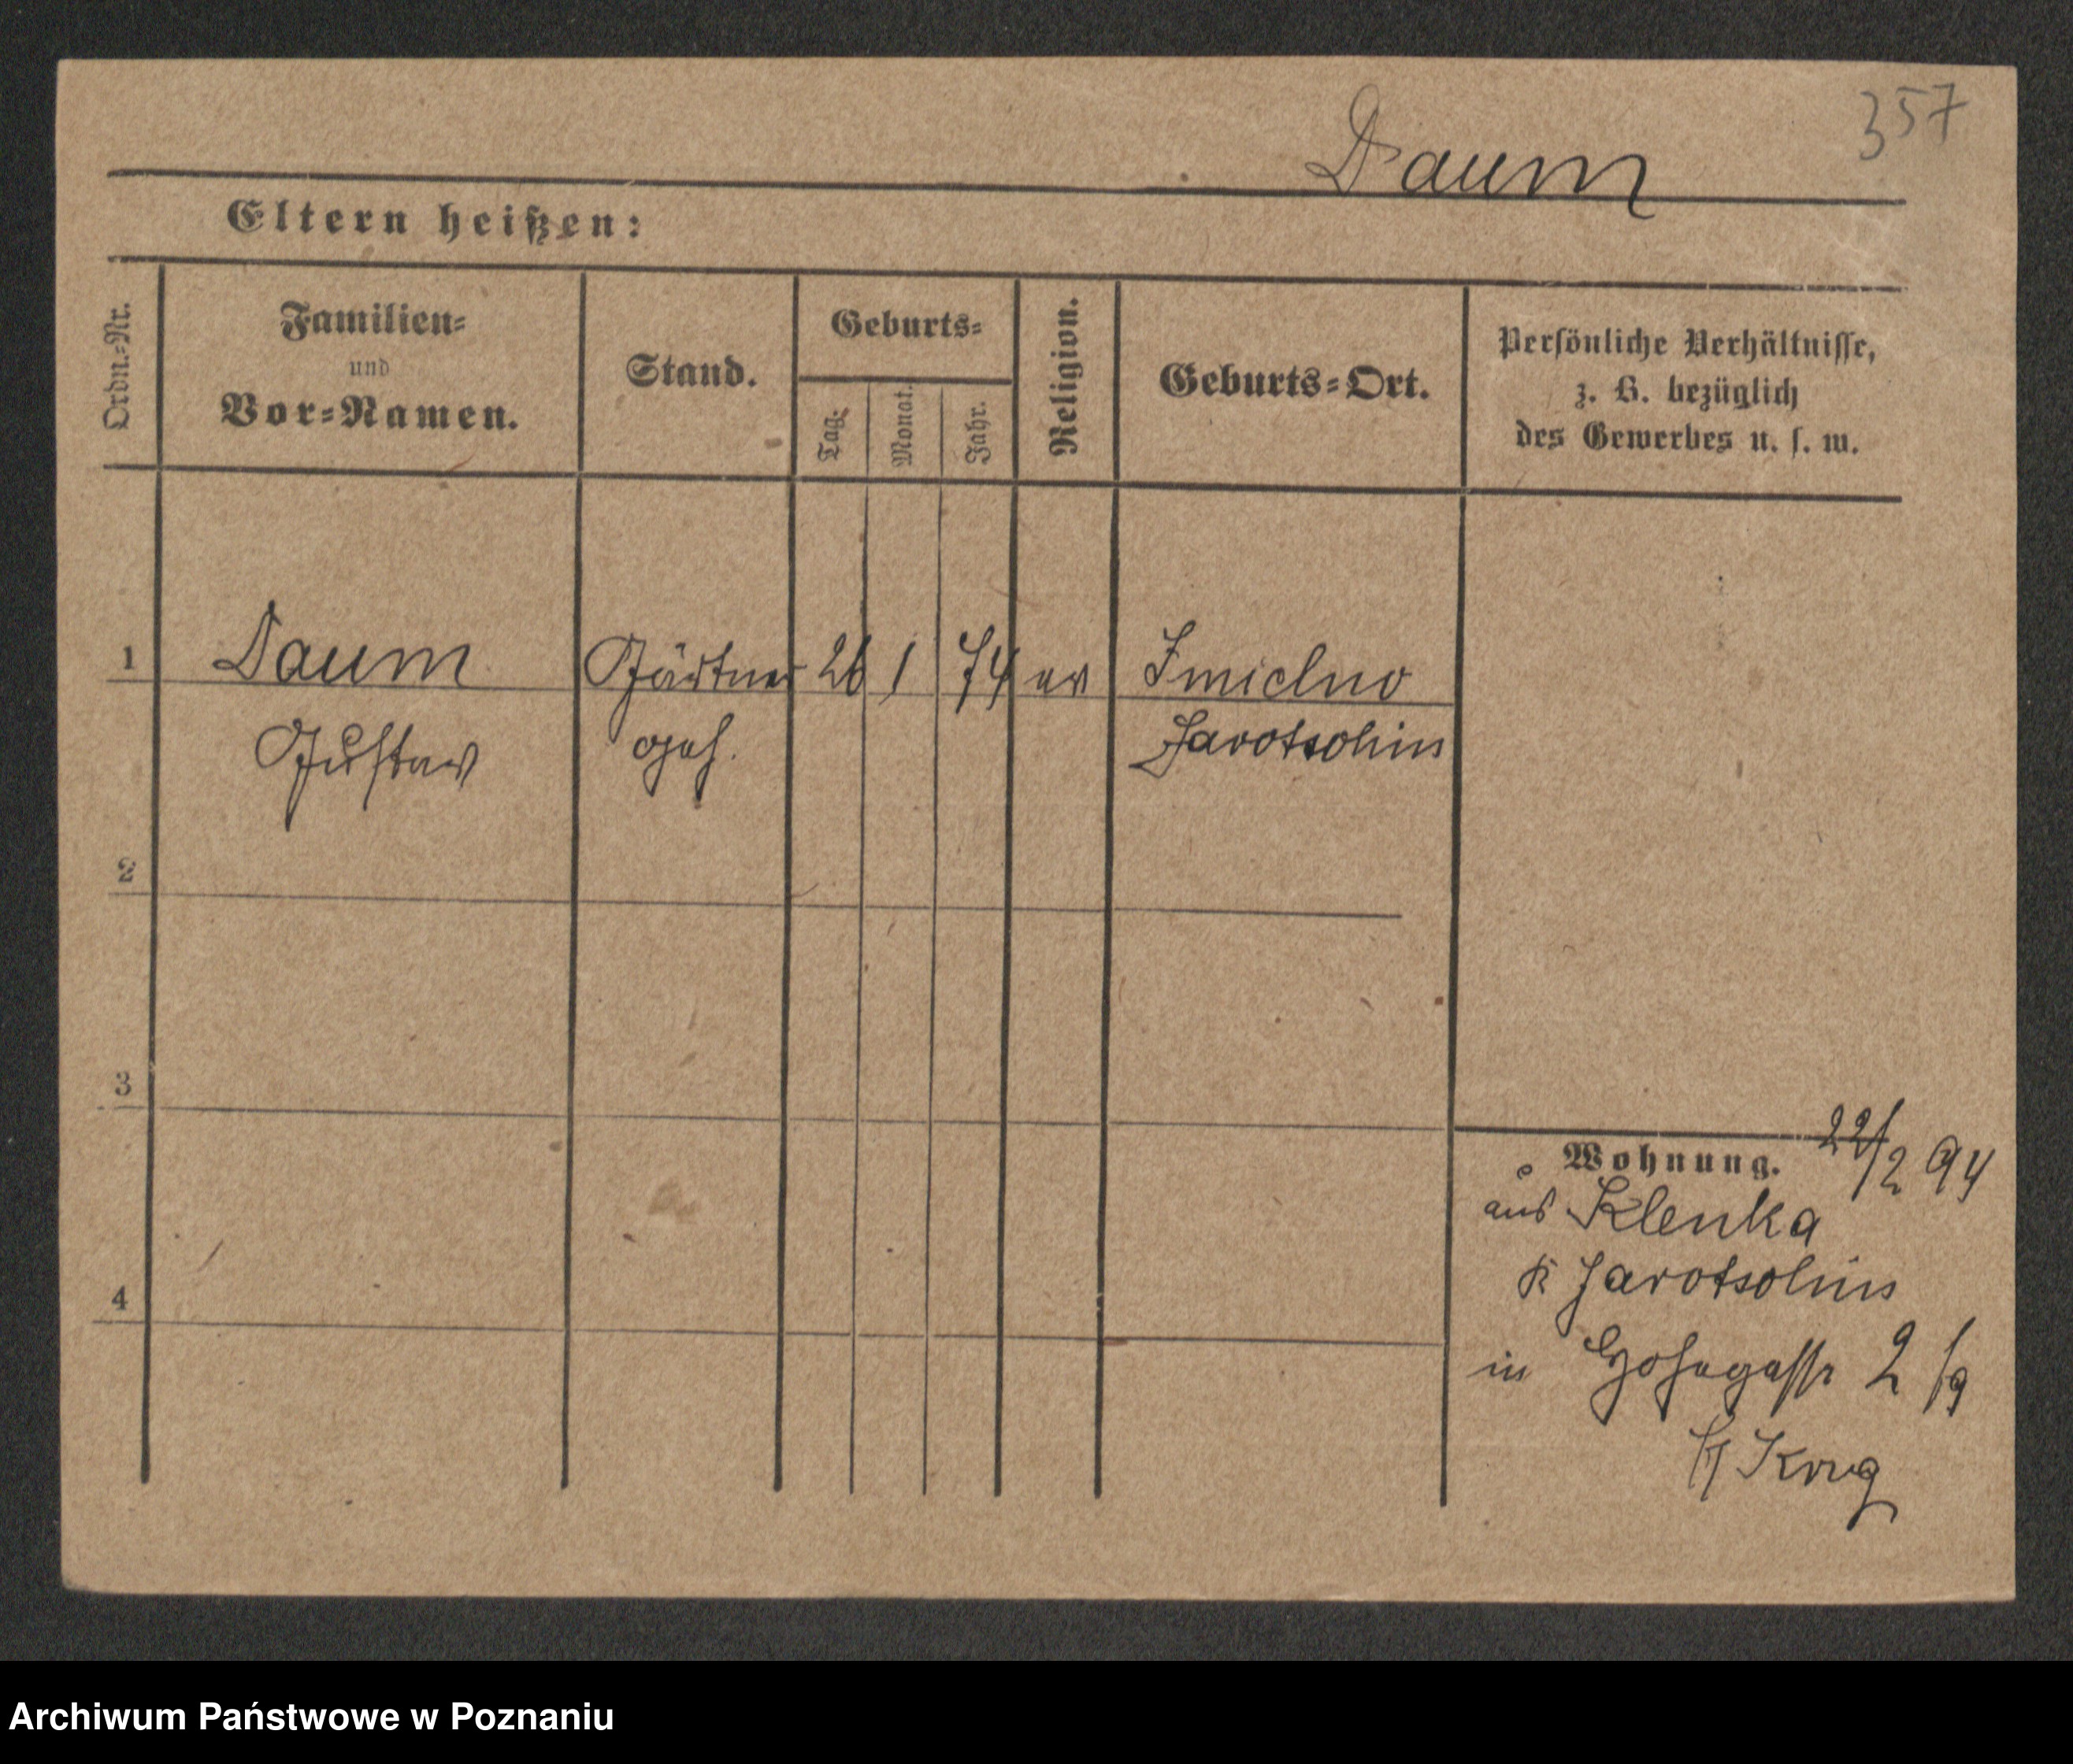 357
Daum
Eltern heißen:
Ordn.-Nr.
Familien-
und
Vor-Namen.
Stand.
Geburts-
Tag.
Monat.
Jahr.
Religion.
Geburts-Ort.
Persönliche Verhältnisse,
z. B. bezüglich
des Gewerbes u. s. w.
1 Daum Gärtner 26 1 74 ev
Gustav geh. Jarotschin
2
3
4
Wohnung. 22/2 94
aus Klenka
K Jarotschin
in 2
Krug
Archiwum Państwowe w Poznaniu